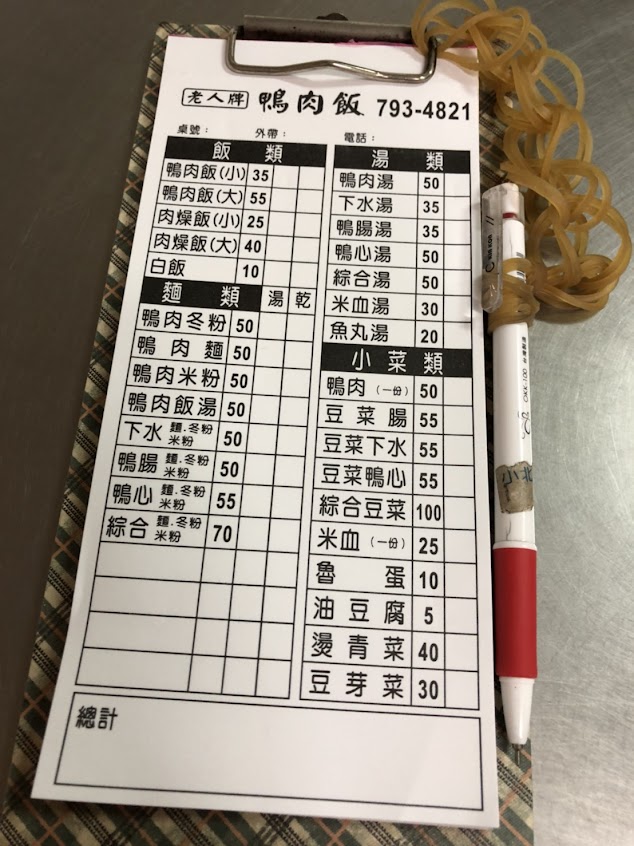 老人牌 鴨肉飯 793-4821
桌號： 外帶： 電話：
飯類
鴨肉飯(小) 35
鴨肉飯(大) 55
肉燥飯(小) 25
肉燥飯(大) 40
白飯 10
麵類 湯 乾
鴨肉冬粉 50
鴨肉麵 50
鴨肉米粉 50
鴨肉飯湯 50
下水 麵.冬粉 米粉 50
鴨腸 麵.冬粉 米粉 50
鴨心 麵.冬粉 米粉 55
綜合 麵.冬粉 米粉 70
湯類
鴨肉湯 50
下水湯 35
鴨腸湯 35
鴨心湯 50
綜合湯 50
米血湯 30
魚丸湯 20
小菜類
鴨肉(一份) 50
豆菜腸 55
豆菜下水 55
豆菜鴨心 55
綜合豆菜 100
米血(一份) 25
魯蛋 10
油豆腐 5
燙青菜 40
豆芽菜 30
總計
小北